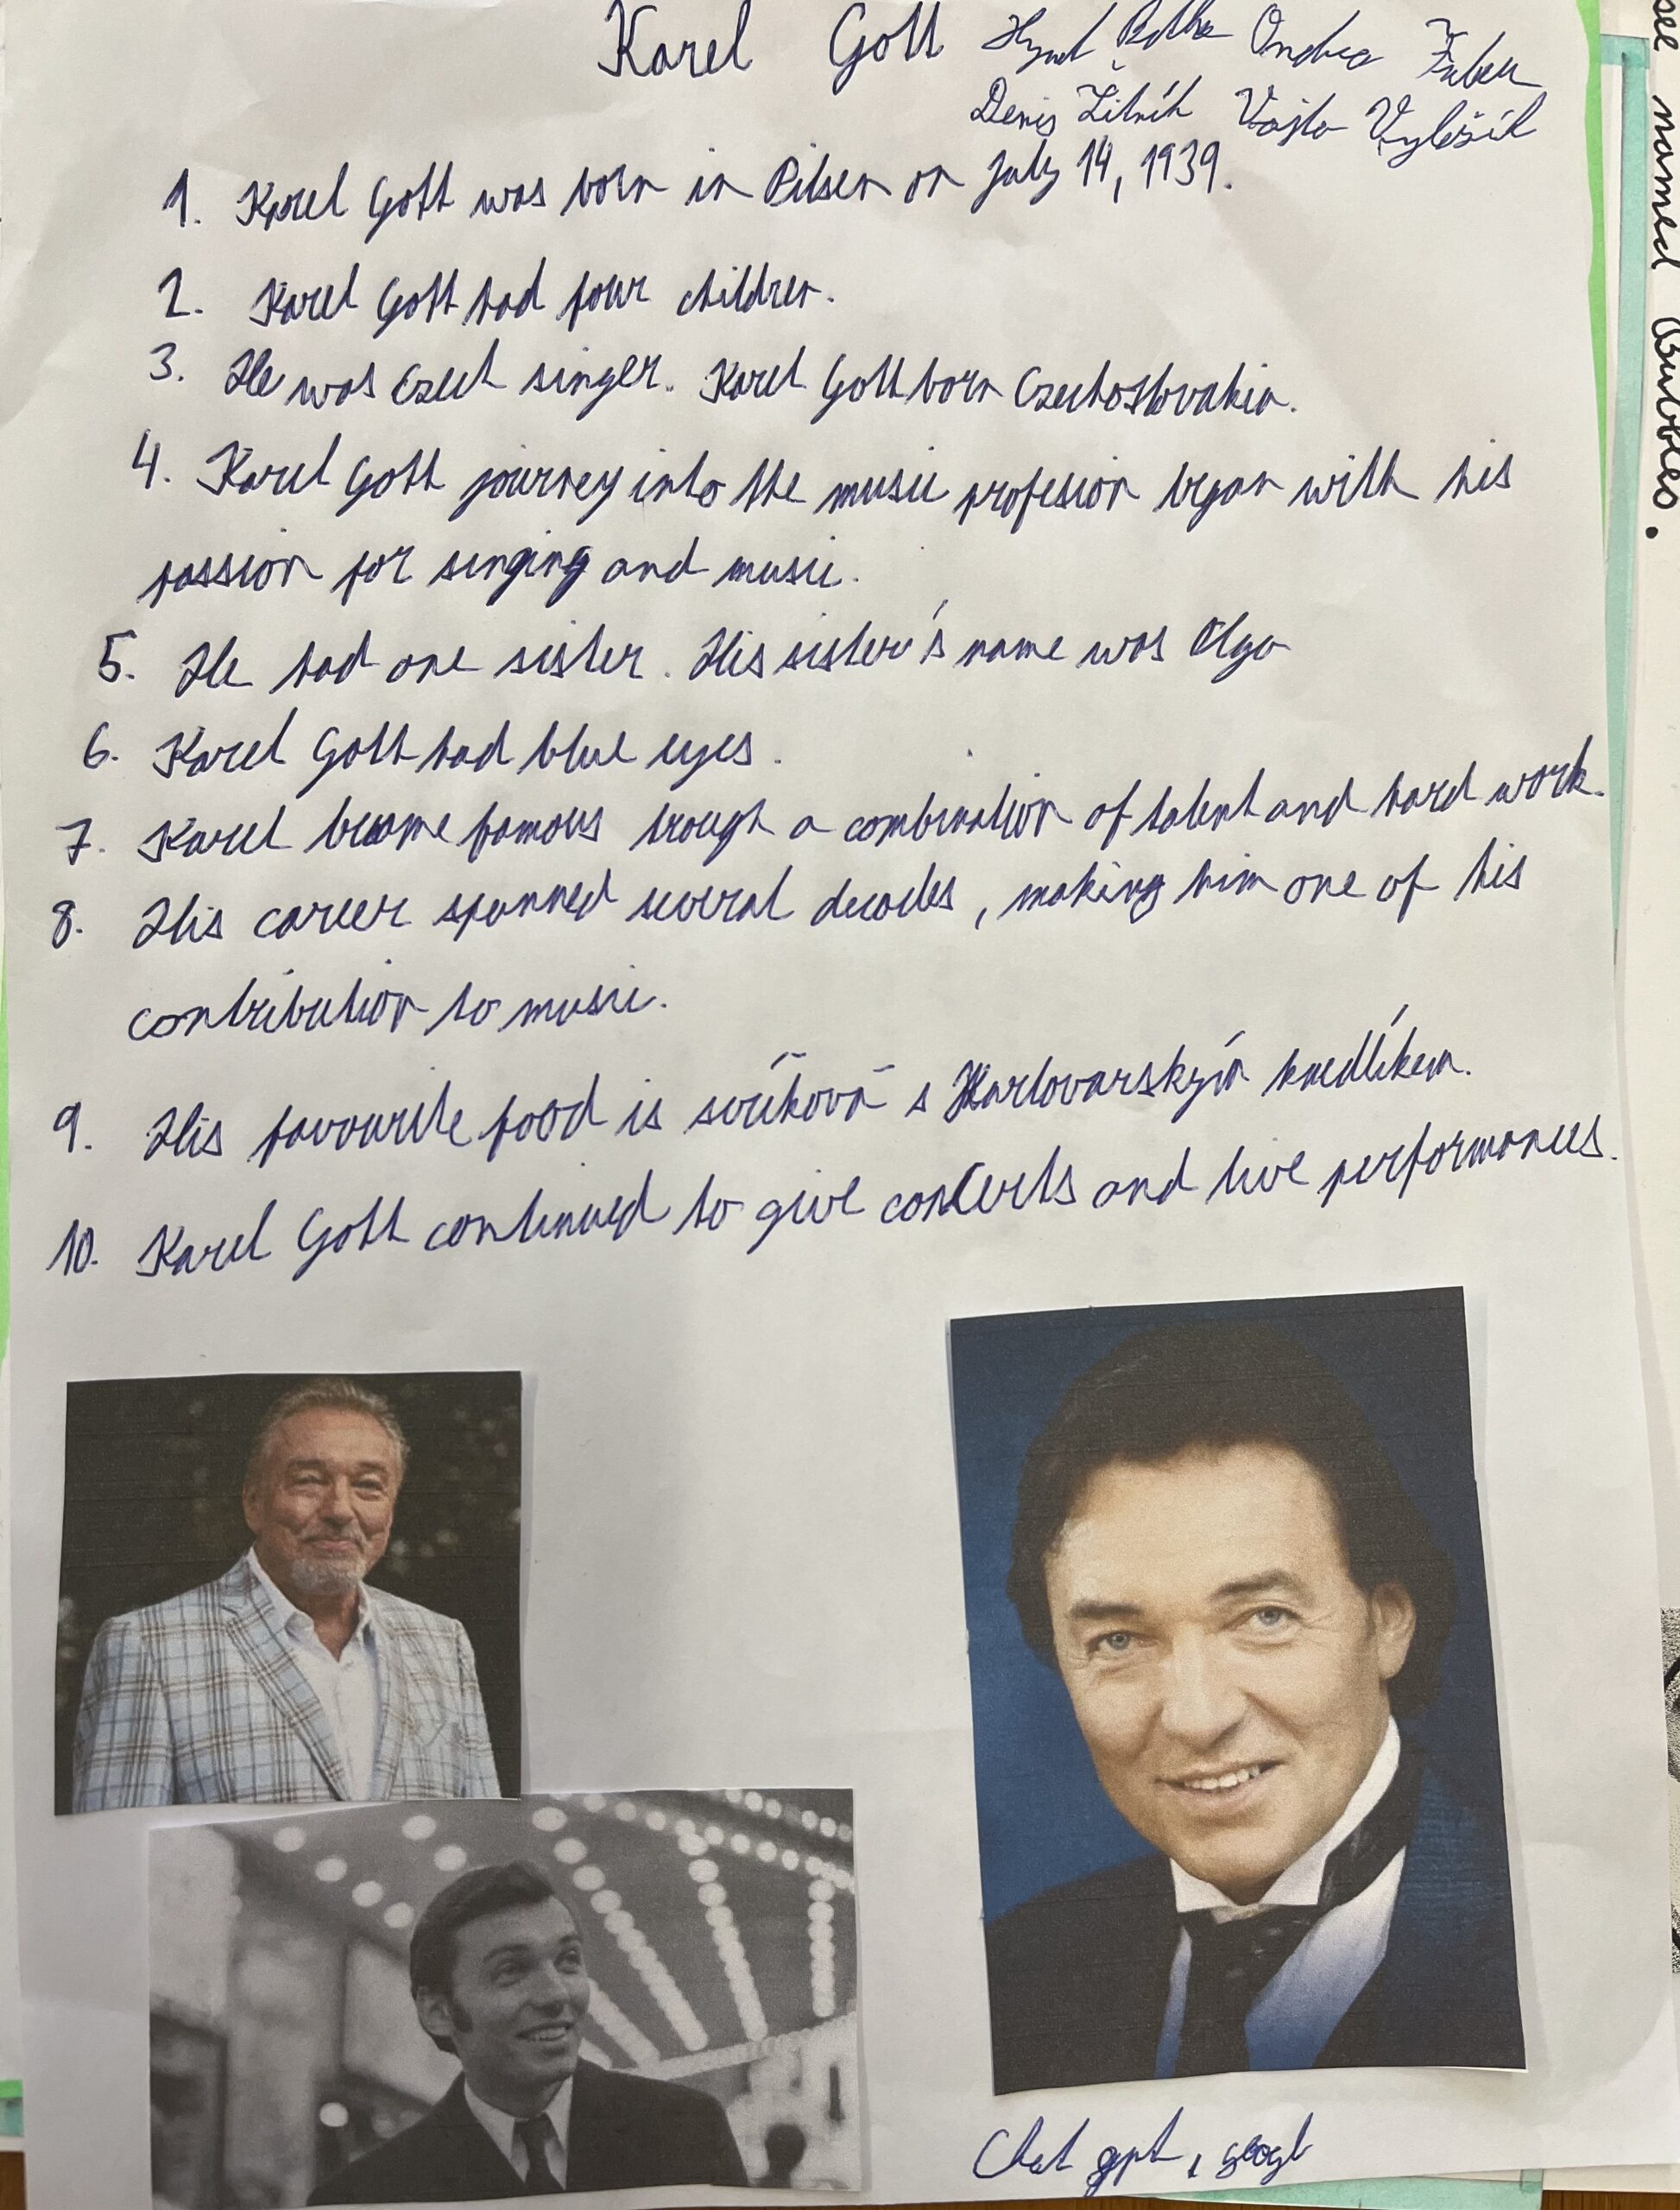 Karel Gott
Ondra
Denis Vojta
1. Karel Gott was born in Pilsen on july 14, 1939.
2. Karel Gott had four children.
3. He was Czech singer. Karel Gott born Czechoslovakia.
4. Karel Gott journey into the music profesion began with his
passion for singing and music.
5. He had one sister. His sister's name was Olga
6. Karel Gott had blue eyes.
7. Karel became famous trough a combination of talent and hard work.
8. His career spanned several decades, making him one of his
contribution to music.
9. His favourite food is svíčková s Karlovarským knedlíkem.
10. Karel Gott continued to give concerts and live performances.
Chat gpt, googl
see named Bubbles.